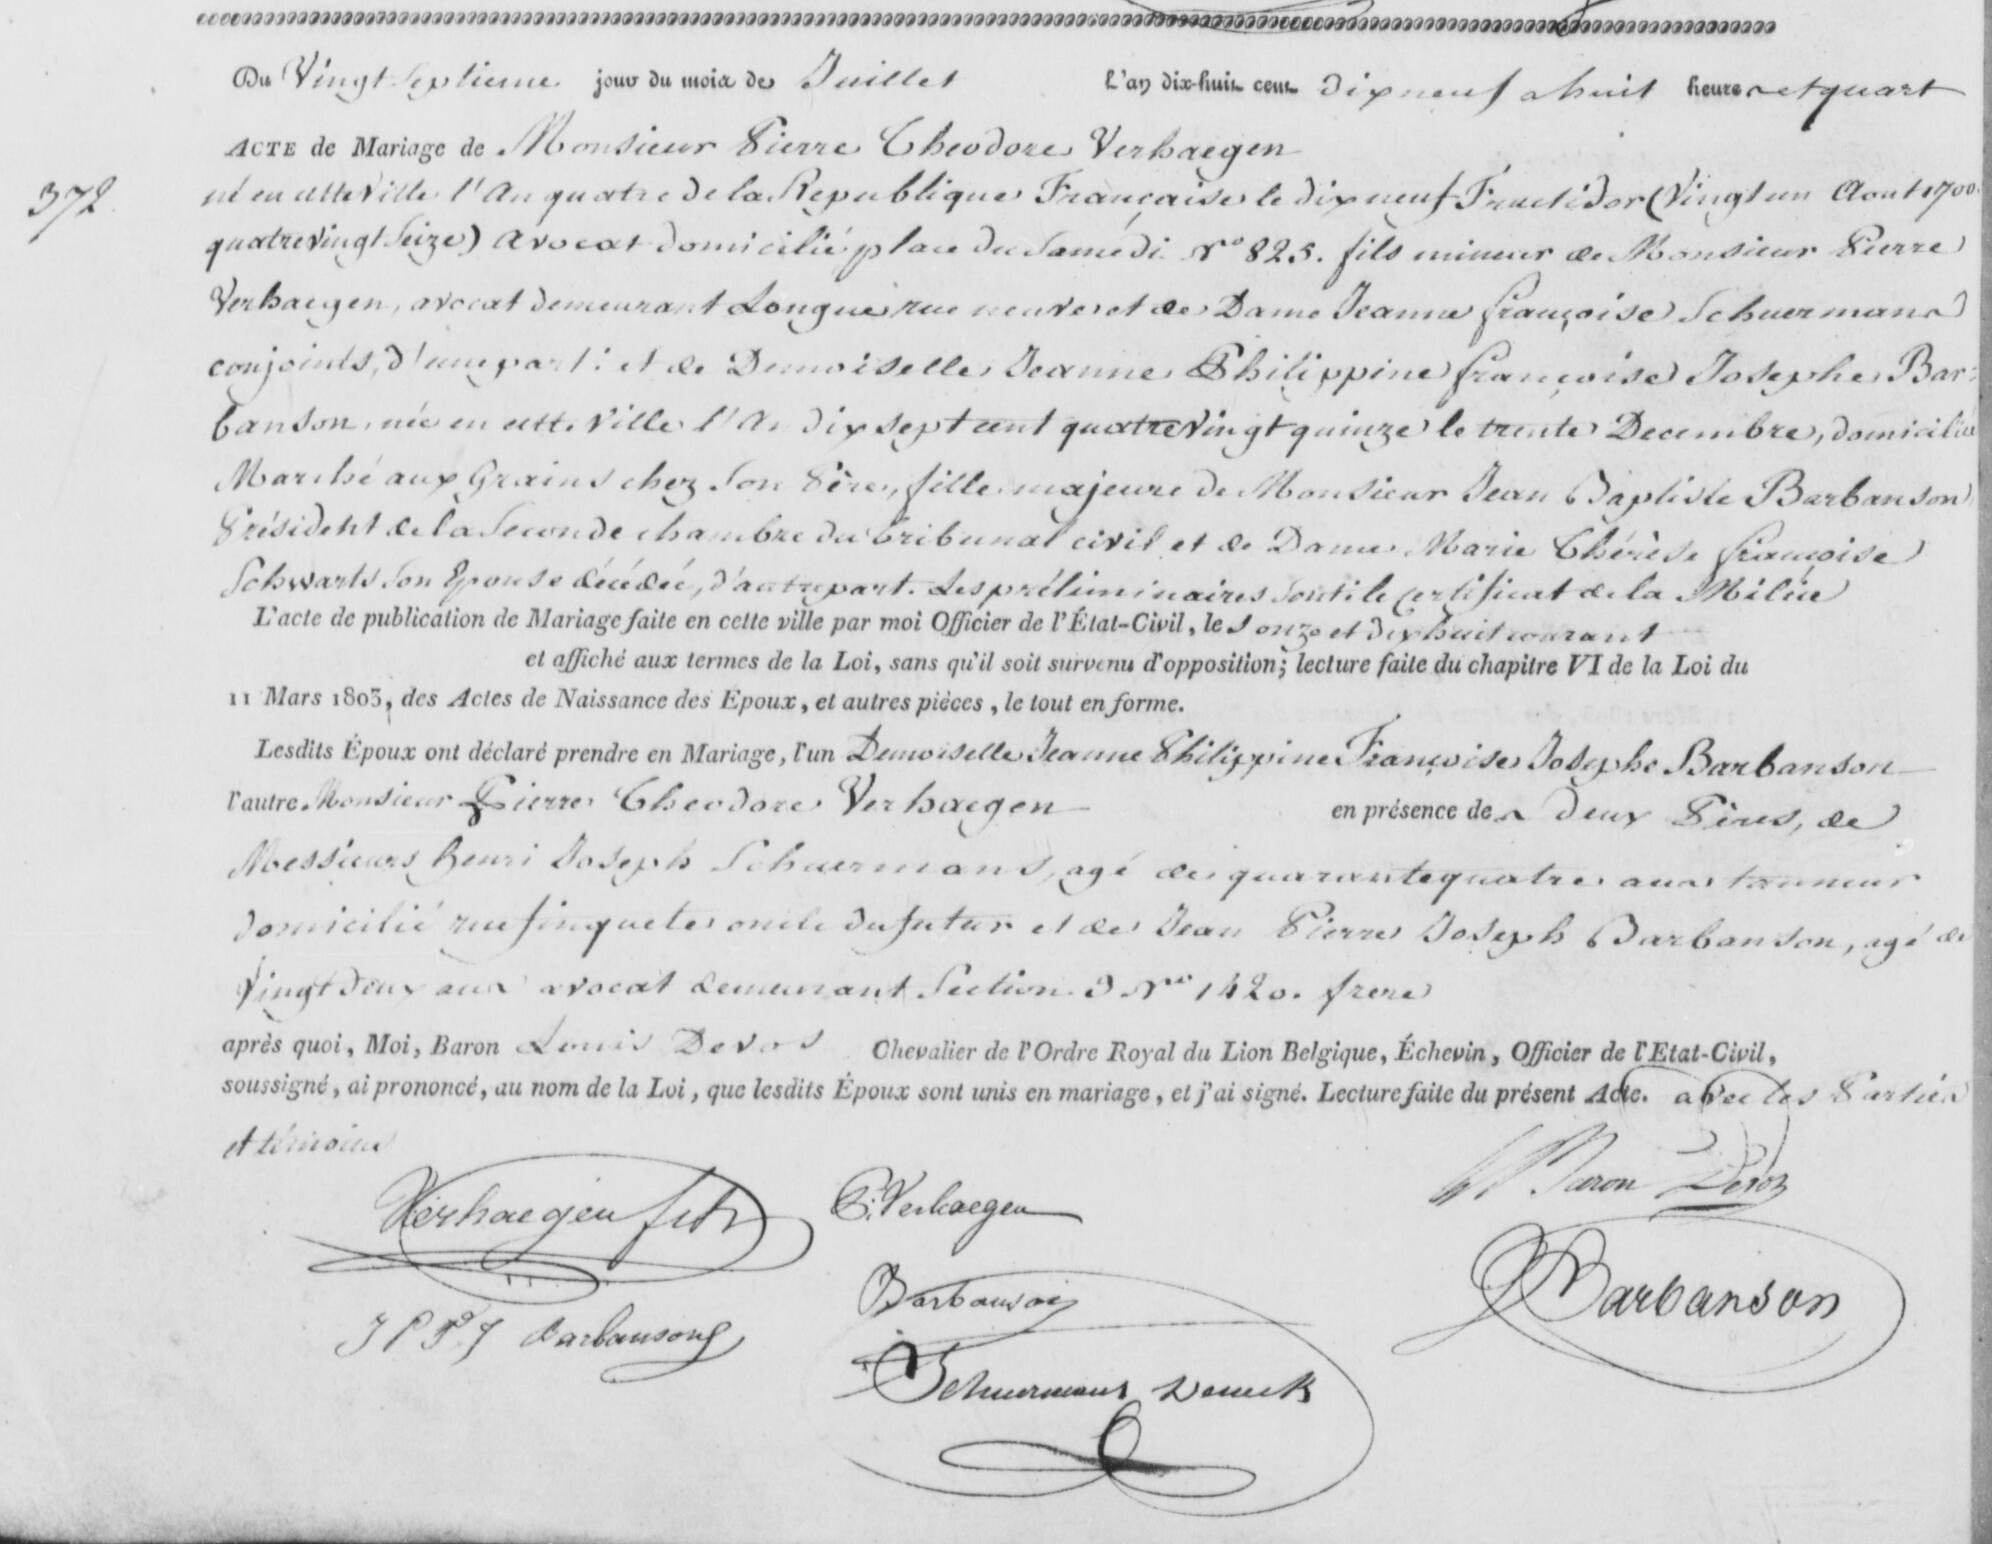 Du Vingt Septieme jour du mois de Juillet L'an dix-huit cent dix neuf a huit heures et quart
ACTE de Mariage de Monsieur Pierre Theodore Verhaegen
372
né en cette Ville l'An quatre de la Republique Française le dix neuf Fructidor (Vingt un Aout 1700
quatrevingt Seize) Avocat domicilié place du Samedi N° 825. fils mineur de Monsieur Pierre
Verhaegen, avocat demeurant Longue rue neuve et de Dame Jeanne françoise Schuermans
conjoints, d'une part: et de Demoiselle Jeanne Philippine françoise Josephe Bar-
banson, née en cette Ville l'An dix sept cent quatrevingt quinze le trente Decembre, domiciliée
Marché aux Grains chez Son Père, fille majeure de Monsieur Jean Baptiste Barbanson
Président de la Seconde chambre du tribunal civil et de Dame Marie Thérèse françoise
Schwarts Son Epouse décédée, d'autre part. Les préliminaires sont: le certificat de la Milice
L'acte de publication de Mariage faite en cette ville par moi Officier de l'État-Civil, le onze et dix huit courant
et affiché aux termes de la Loi, sans qu'il soit survenu d'opposition; lecture faite du chapitre VI de la Loi du
11 Mars 1803, des Actes de Naissance des Epoux, et autres pièces, le tout en forme.
Lesdits Époux ont déclaré prendre en Mariage, l'un Demoiselle Jeanne Philippine Françoise Josephe Barbanson
l'autre Monsieur Pierre Theodore Verhaegen en présence des deux Pères, de
Messieurs henri Joseph Schuermans, agé de quarante quatre ans tanneur
domicilié rue finquete oncle du futur et de Jean Pierre Joseph Barbanson, agé de
Vingt deux ans avocat demeurant Section 3 N° 1420. frere
après quoi, Moi, Baron Louis Devos Chevalier de l'Ordre Royal du Lion Belgique, Échevin, Officier de l'Etat-Civil,
soussigné, ai prononcé, au nom de la Loi, que lesdits Époux sont unis en mariage, et j'ai signé. Lecture faite du présent Acte. avec les Parties
et témoins
Verhaegen fils P. Verhaegen Baron Devos
Barbanson Barbanson
J P J Barbanson
Schuermans